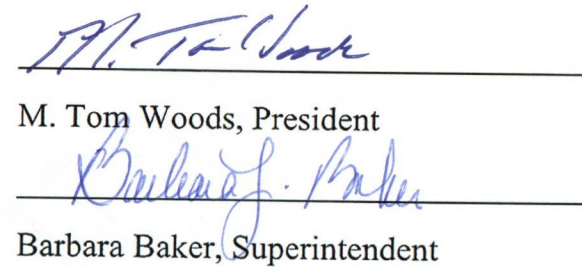 M. Tom Woods
M. Tom Woods, President
Barbara J. Baker
Barbara Baker, Superintendent